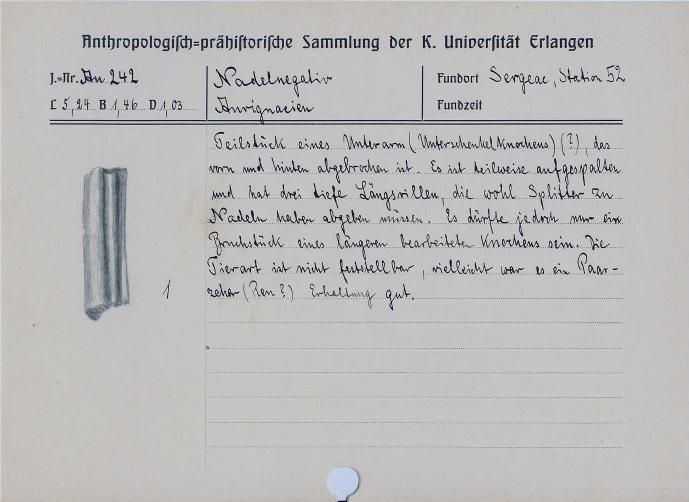 Anthropologisch-prähistorische Sammlung der K. Universität Erlangen
J.-Nr. An 242
L 5,24 B 1,46 D 1,03
Nadelnegativ
Aurignacien
Fundort Sergeac, Station 52
Fundzeit
Teilstück eines Unterarm (Unterschenkelknochens) (?), das
vorn und hinten abgebrochen ist. Es ist teilweise aufgespalten
und hat drei tiefe Längsrillen, die wohl Splitter zu
Nadeln haben abgeben müssen. Es dürfte jedoch nur ein
Bruchstück eines längeren bearbeiteten Knochens sein. Die
Tierart ist nicht feststellbar, vielleicht war es ein Paar-
zeher (Ren?) Erhaltung gut.
1